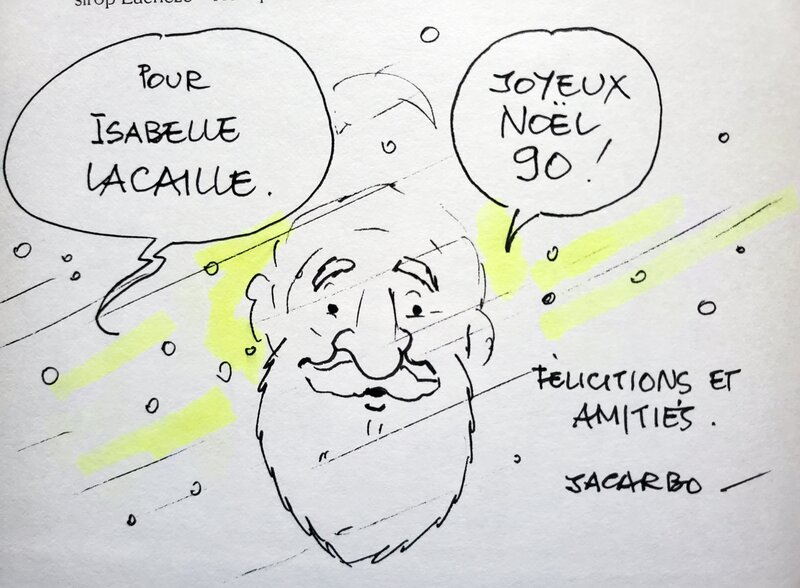 POUR
ISABELLE
LACAILLE.
JOYEUX
NOËL
90 !
FÉLICITIONS ET
AMITIÉS.
JACARBO